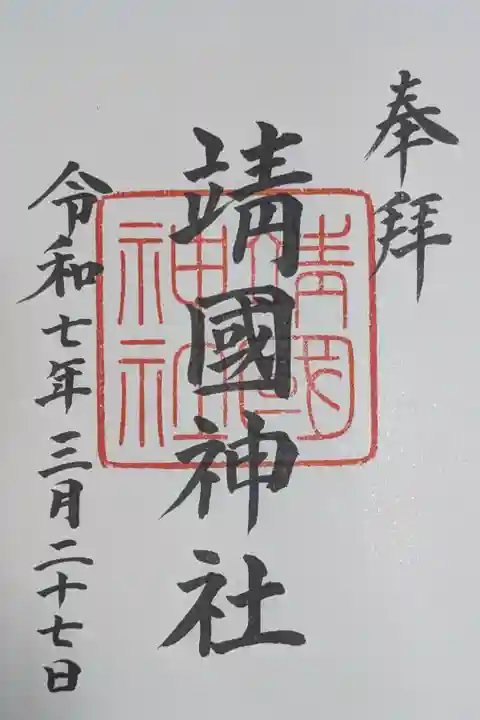 奉拝
靖國神社
靖國神社
令和七年三月二十七日